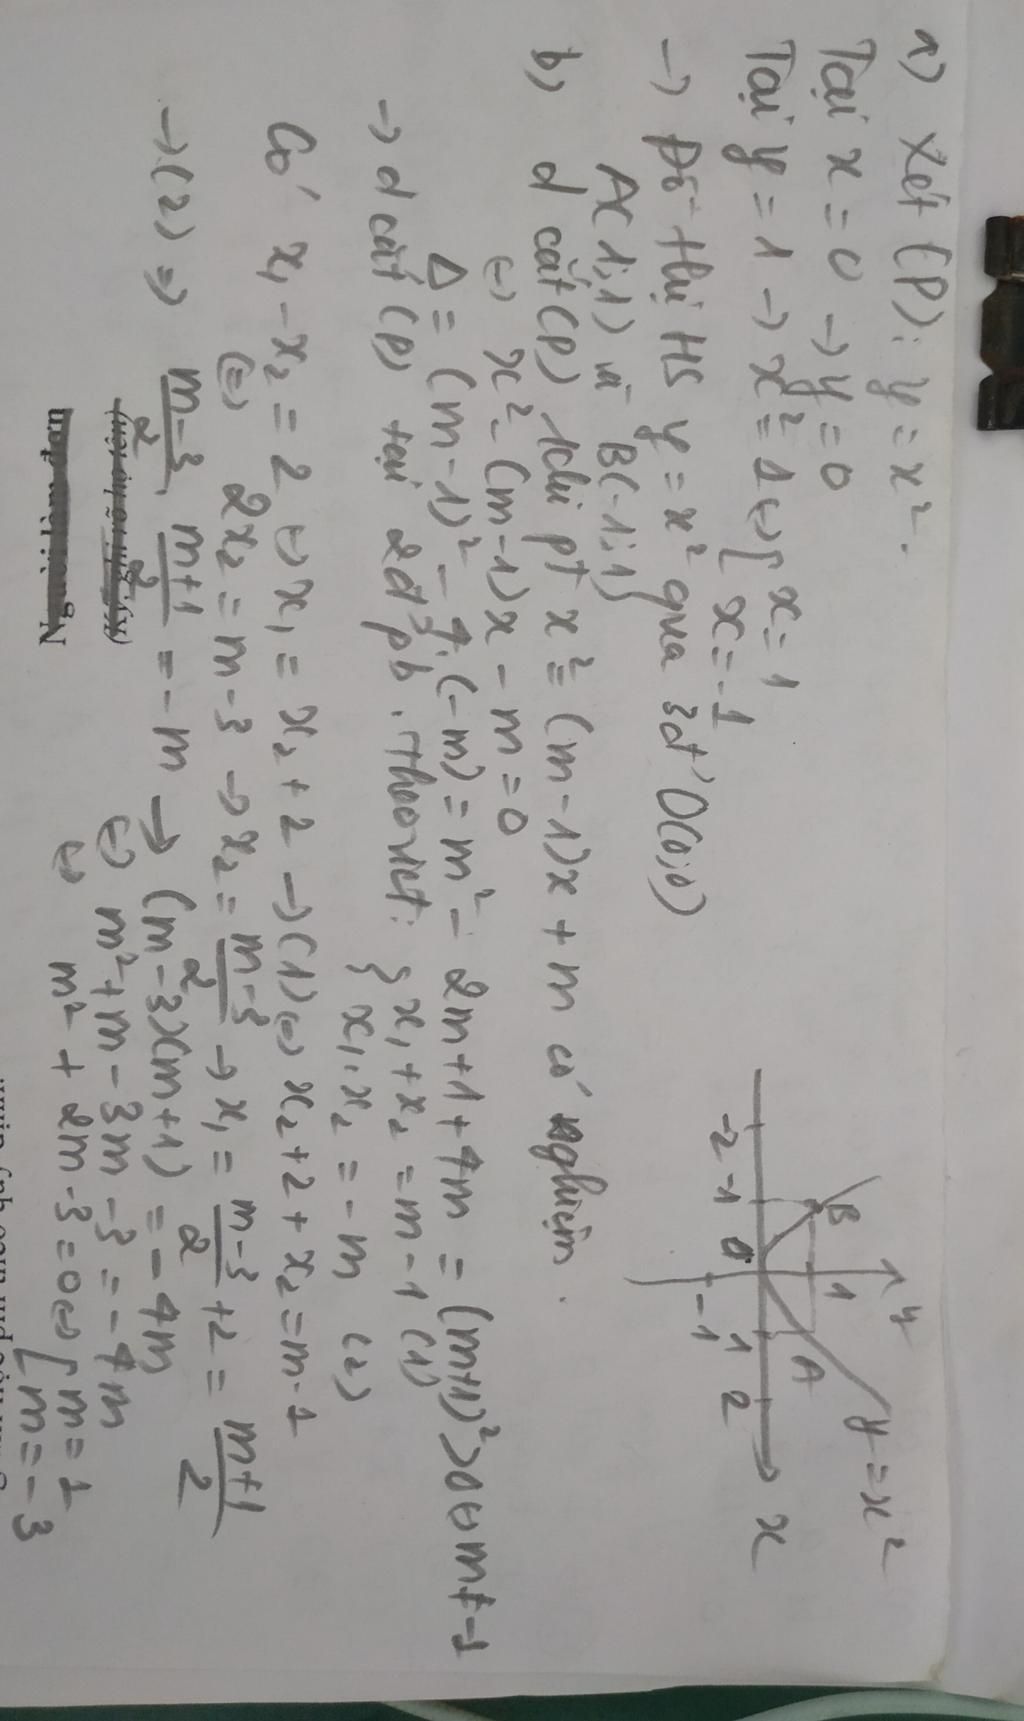 a) Xét (P): y = x².
Tại x = 0 → y = 0
Tại y = 1 → x² = 1 ↔ [ x = 1
x = -1
→ Đồ thị HS y = x² qua 3đ' O(0;0)
A(1;1) và B(-1;1)
y
B
1
A
y = x²
-2 -1 0 1 2 x
-1
b) d cắt (P) khi pt x² = (m-1)x + m có nghiệm.
↔ x² - (m-1)x - m = 0
Δ = (m-1)² - 4.(-m) = m² - 2m + 1 + 4m = (m+1)² > 0 ↔ m ≠ -1
→ d cắt (P) tại 2đ' pb. Theo viet: { x₁ + x₂ = m - 1 (1)
x₁.x₂ = -m (2)
Có x₁ - x₂ = 2 ↔ x₁ = x₂ + 2 → (1) ↔ x₂ + 2 + x₂ = m - 1
↔ 2x₂ = m - 3 → x₂ = (m-3)/2 → x₁ = (m-3)/2 + 2 = (m+1)/2
→ (2) ⇒ (m-3)/2 . (m+1)/2 = -m → (m-3)(m+1) = -4m
↔ m² + m - 3m - 3 = -4m
↔ m² + 2m - 3 = 0 ↔ [ m = 1
m = -3
(Ký, ghi rõ họ tên)
Người làm đơn